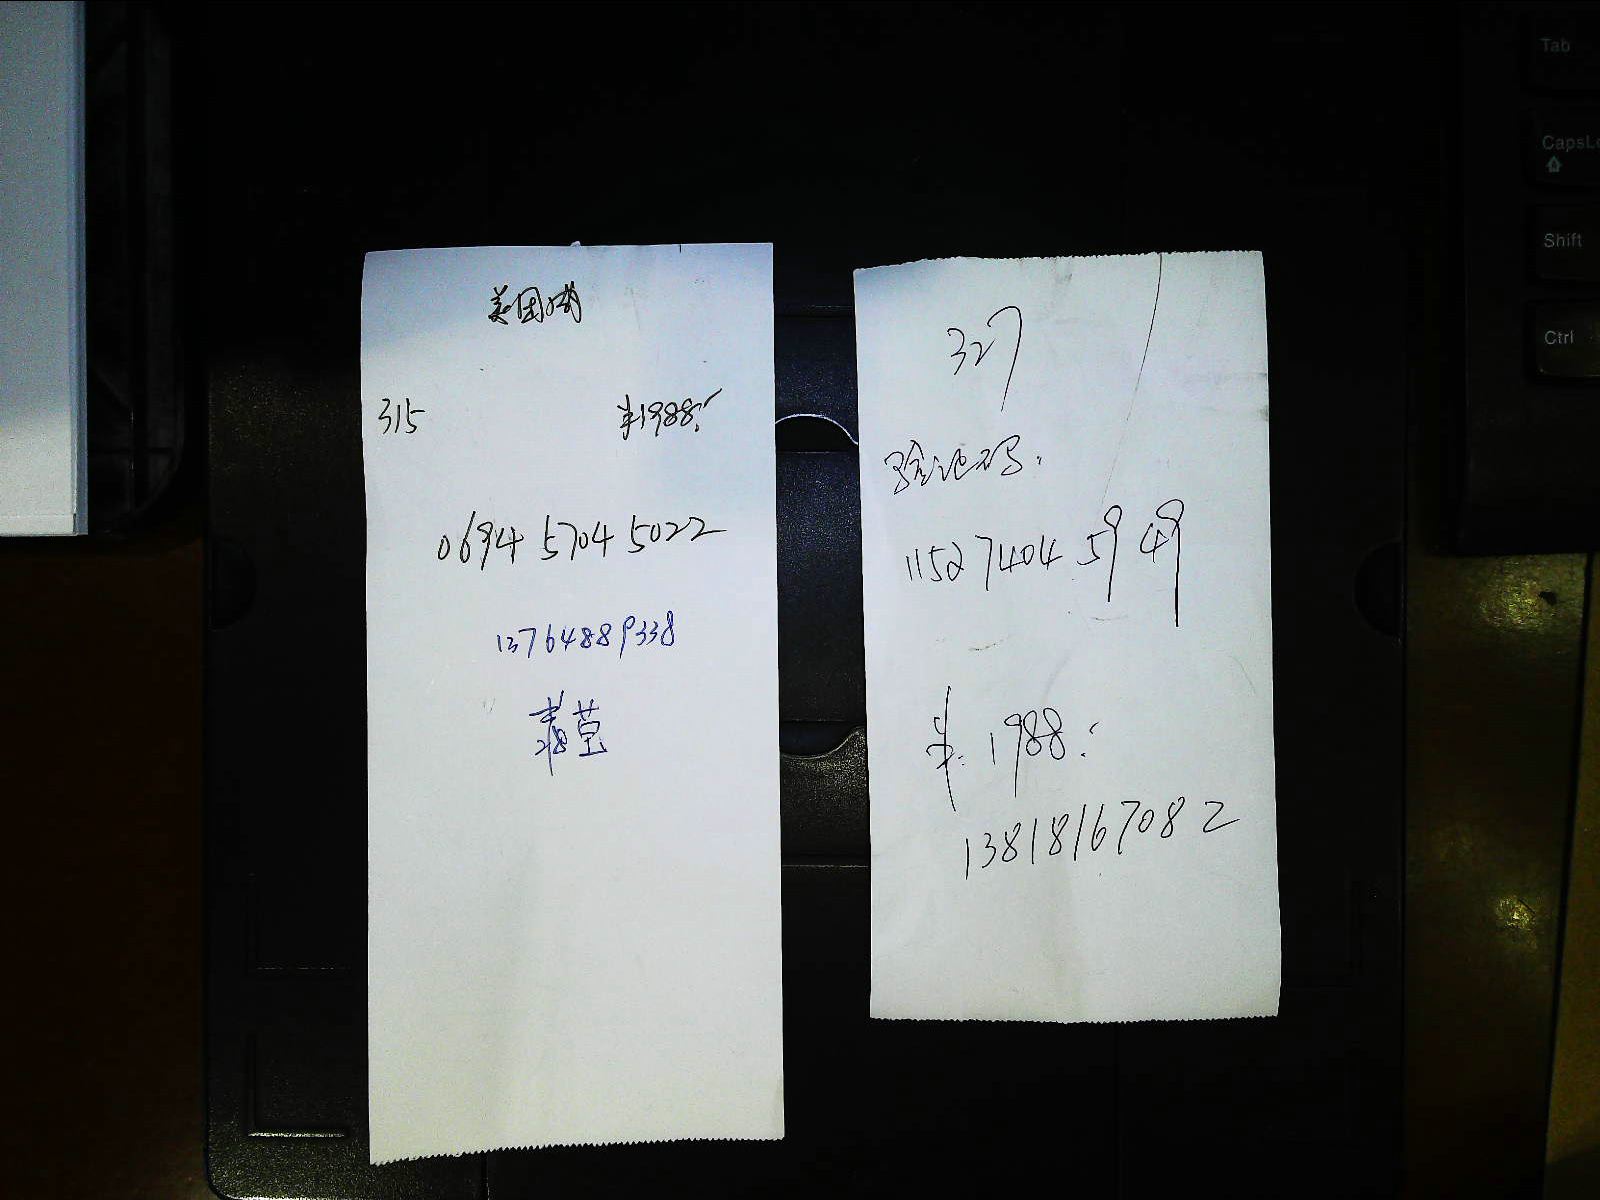 美团网
315 ¥1988.-
0694 5704 5022
13764889338
327
验证码:
1152 7404 5949
¥: 1988.-
13818167082
Tab
CapsLo
Shift
Ctrl